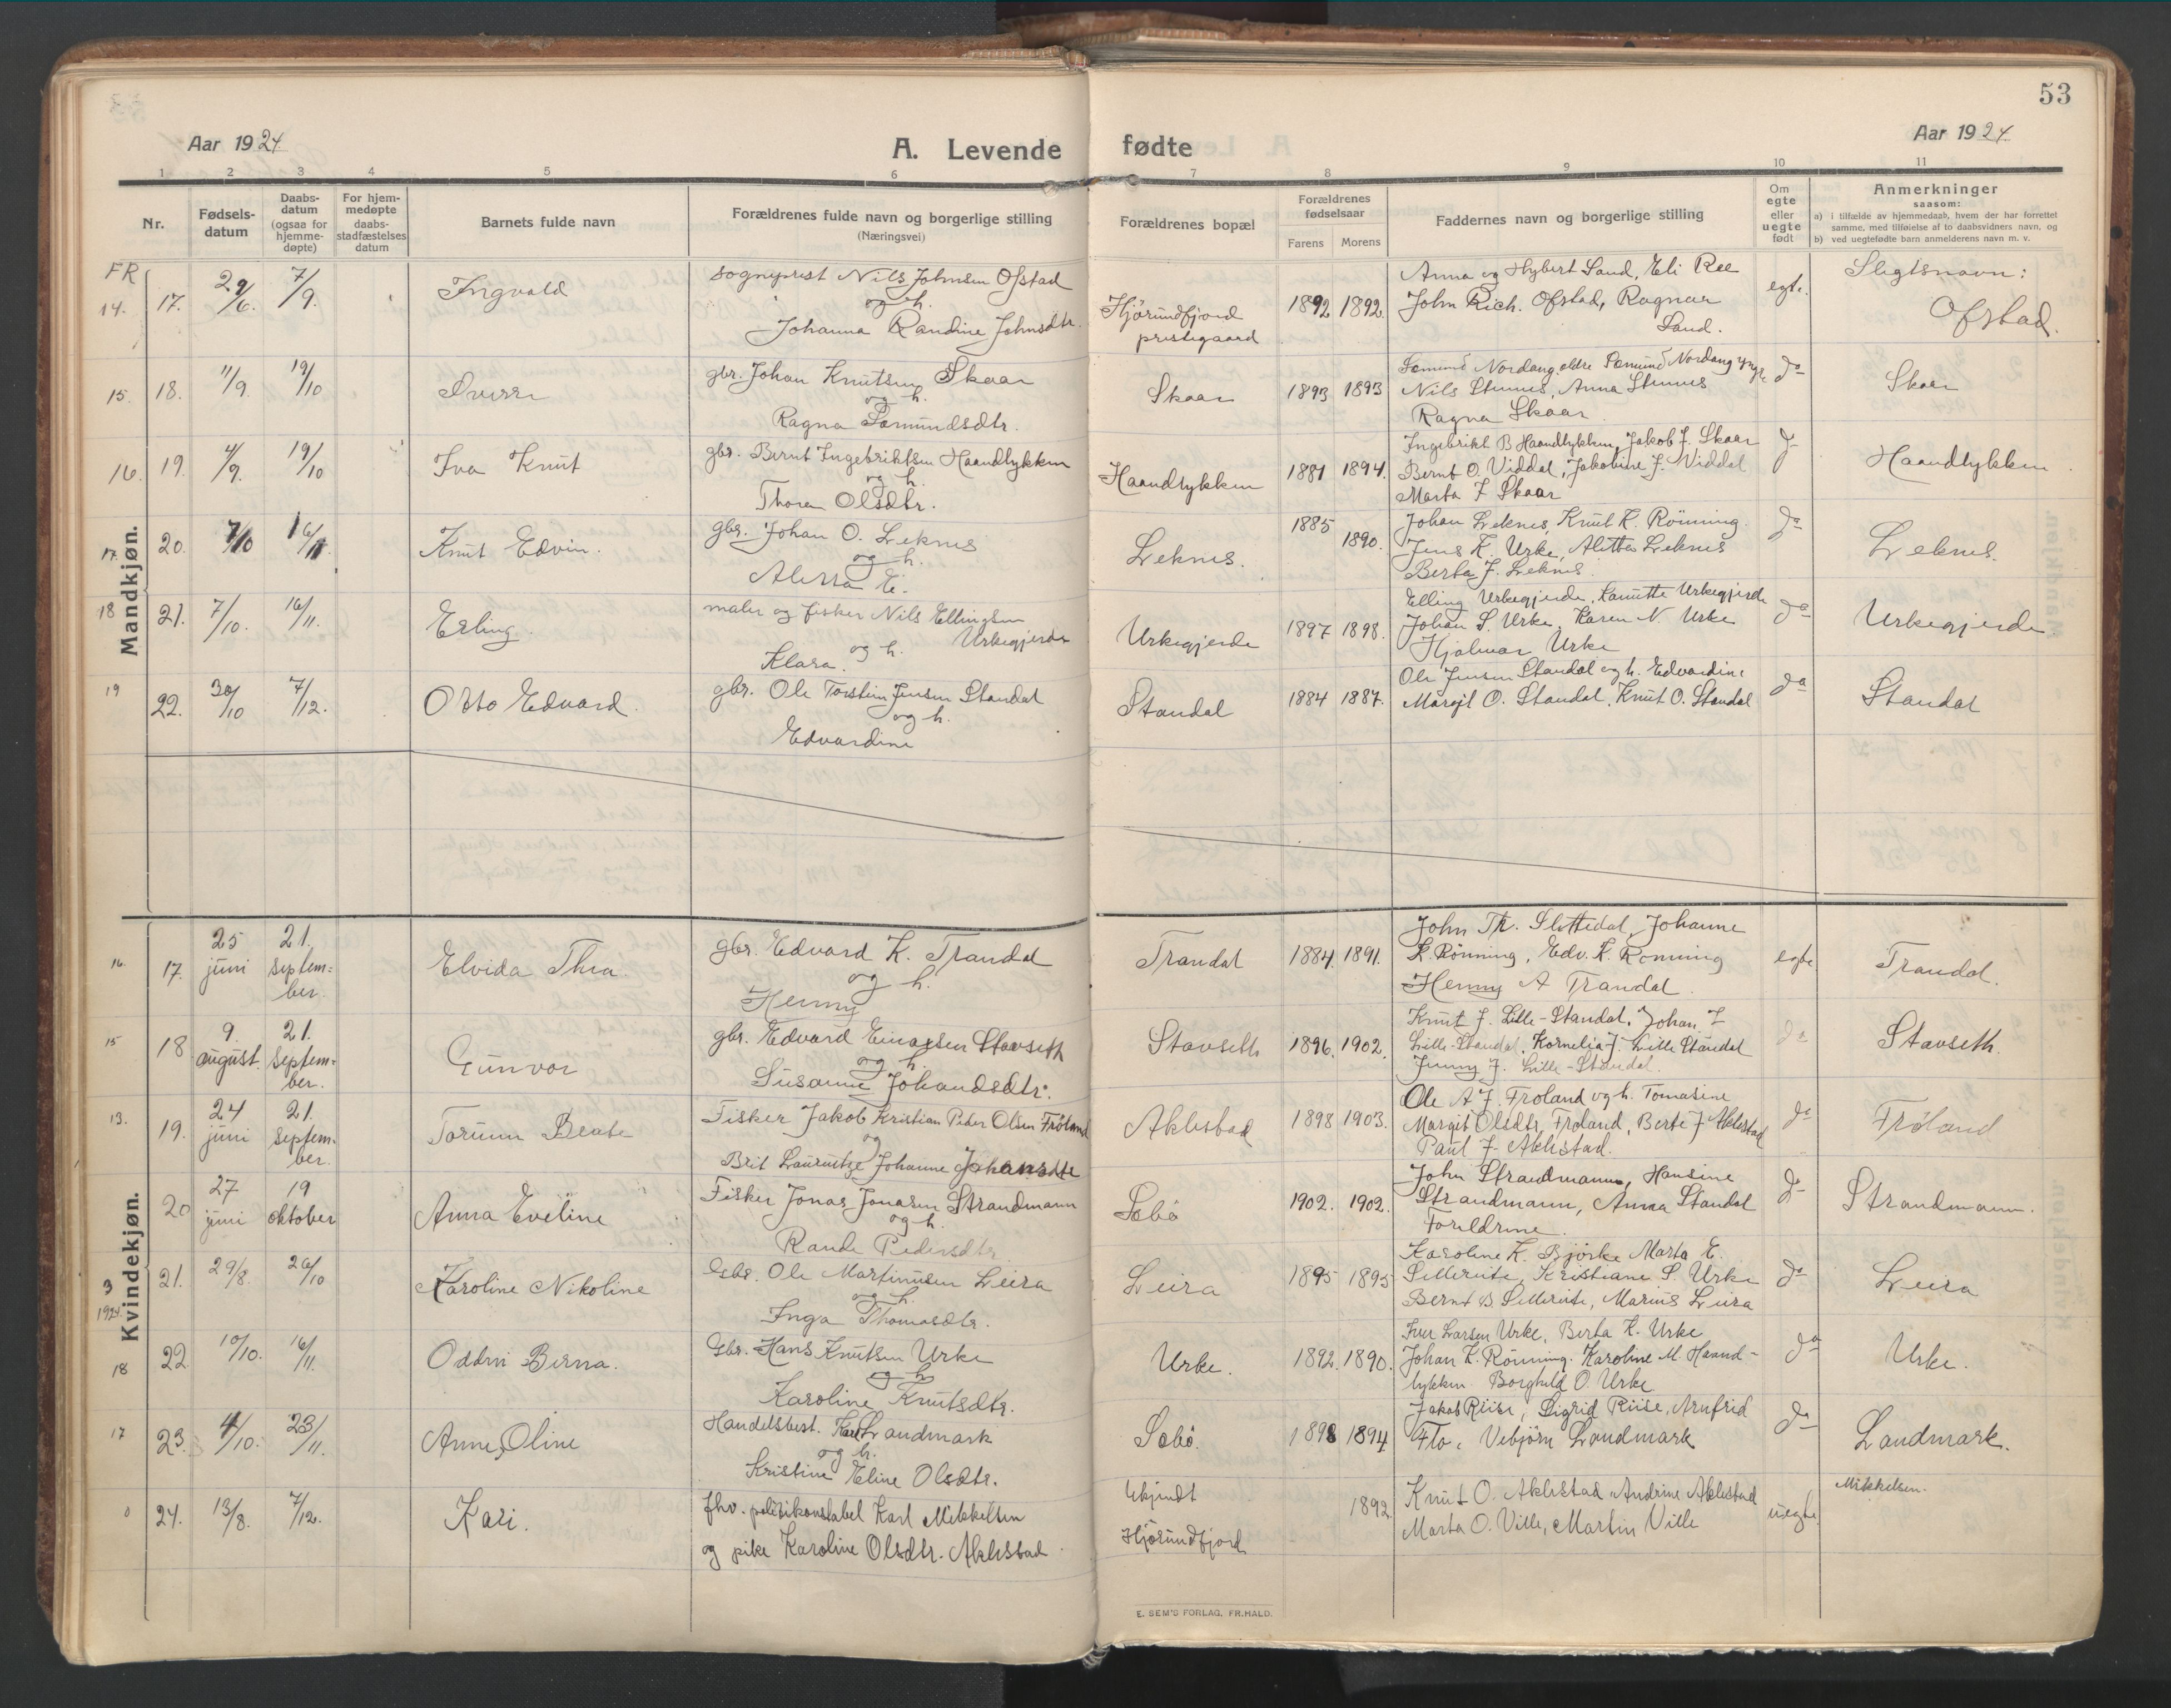 53
Aar 1924
A. Levende fødte
Aar 1924
1 2 3 4 5 6 7 8 9 10 11
Nr.
Fødsels-
datum
Daabs-
datum
(ogsaa for
hjemme-
døpte)
For hjem-
medøpte
daabs-
stadfæstelses
datum
Barnets fulde navn
Forældrenes fulde navn og borgerlige stilling
(Næringsvei)
Forældrenes bopæl
Forældrenes
fødselsaar
Farens Morens
Faddernes navn og borgerlige stilling
Om
egte
eller
uegte
født
Anmerkninger
saasom:
a) i tilfælde av hjemmedaab, hvem der har forrettet
samme, med tilføielse af to daabsvidners navn, og
b) ved uegtefødte barn anmelderens navn m. v.
Mandkjøn.
FR
14. 17. 29/6. 7/9. Ingvald
sogneprest Nils Johnsen Ofstad
og h.
Johanna Randine Johnsdtr.
Hjørundfjord
prestegaard
1892 1892.
Anna og Hybert Sand, Eli Ree
John Rich. Ofstad, Ragnar
Sand.
egte.
Slegtsnavn:
Ofstad.
15. 18. 11/9. 19/10 Sverre
gbr. Johan Knutsen Skaar
og h.
Ragna Sæmundsdtr.
Skaar 1893 1893
Sæmund Nordang eldre Sæmund Nordang yngre
Nils Stennes, Anna Stennes
Ragna Skaar
do
Skaar
16. 19. 4/9. 19/10 Iva Knut
gbr. Bernt Ingebriktsen Haandlykken
og h.
Thora Olsdtr.
Haandlykken 1881 1894.
Ingebrikt B Haandlykken, Jakob J. Skaar
Bernt O. Viddal, Jakobine J. Viddal
Marta J Skaar
do
Haandlykken
17. 20. 7/10 16/11. Knut Edvin.
gbr. Johan O. Leknes
og h.
Alette E.
Leknes. 1885 1890.
Johan Leknes, Knut K. Rönning.
Jens K. Urke, Alette Leknes
Berta J. Leknes.
do
Leknes.
18 21. 7/10. 16/11. Erling.
maler og fisker Nils Ellingsen
Urkegjerde
og h.
Klara.
Urkegjerde 1897 1898.
Elling Urkegjerde, Lamitte Urkegjerde
Johan S. Urke, Karen N. Urke
Hjalmar Urke
do
Urkegjerde.
19 22. 30/10 7/12. Otto Edvard.
gbr. Ole Torstein Jensen Standal
og h.
Edvardine
Standal 1884 1887.
Ole Jensen Standal og h. Edvardine
Margit O. Standal, Knut O. Standal
do
Standal
Kvindekjøn.
16. 17. 25 juni 21. septem=
ber.
Elvida Thea.
gbr. Edvard K. Trandal
og h.
Henny
Trandal 1884. 1891.
John Th. Slettedal, Johanne
K. Rönning, Edv. K. Rönning
Henny A Trandal.
egte.
Trandal.
15 18 9. august. 21. septem=
ber.
Gunvor
gbr. Edvard Einarsen Stavseth
og h.
Susanne Johandsdtr.
Stavseth 1896. 1902.
Knut J. Lille-Standal. Johan J
Lille-Standal, Kornelia J. Lille Standal
Jenny J. Lille-Standal.
do
Stavseth.
13. 19. 24 juni 21. septem.
ber.
Torunn Beate
Fisker Jakob Kristian Peder Olsen Fröland
og
Brit Lauruitze Johanne Johansdtr
Aklestad 1898 1903.
Ole A J. Froland og h. Tomasine
Margit Olsdtr, Froland, Berte J Aklestad
Paul J. Aklestad.
do
Fröland
20 27 juni 19 oktober Anna Eveline
Fisker Jonas Jonasen Strandmann
og h.
Rande Pedersdtr
Sæbö 1902. 1902.
John Strandmann, Hansine
Strandmann, Anna Standal
Foreldrene.
do
Strandmann.
3
1924.
21. 29/8. 26/10 Karoline Nikoline
Gbr. Ole Martinusen Leira
og h.
Inga Thomasdtr.
Leira 1895 1895
Karoline K. Björke Marta E.
Sellereite, Kristiane S. Urke
Bernt B. Sellereite, Marius Leira
do
Leira
18 22 10/10. 16/11. Oddrun Berna.
Gbr. Hans Knutsen Urke
og h
Karoline Knutsdtr.
Urke. 1892. 1890.
Iver Larsen Urke, Berta K. Urke
Johan K. Rönning. Karoline M. Haand-
lykken. Borghild O. Urke
do
Urke.
17 23. 4/10. 23/11. Anne Oline
Handelsbest. Karl Landmark
og h.
Kristine Eline Olsdtr.
Sæbö. 1898 1894
Jakob Riise, Sigrid Riise, Arnfrid
Flo, Vebjörn Landmark
do
Landmark.
0 24. 13/8. 7/12. Kari.
fhv. politikonstabel Karl Mikkelsen
og pike Karoline Olsdtr. Aklestad.
Ukjendt
Hjörundfjord
1892.
Knut O. Aklestad Andrine Aklestad
Marta O. Ville, Martin Ville
uegte.
Mikkelsen.
E. SEM'S FORLAG, FR.HALD.